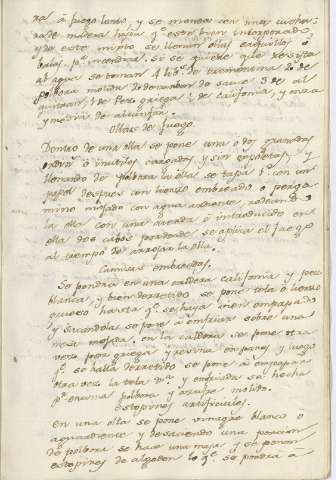 ra à fuego lento, y se menea con una cucha-
ra de madera hasta q.e este bien incorporado
y de este mixto se llenan ollas carcuches ò
balas p.a encender. Si se quiere que resista
al agua se toman 4 lib.s de trementina 20 de
polvora molida
quitran 1 de Pez griega 1 de calofonia, y onza
y media de alcanfor.
Ollas de fuego
Dentro de una olla se pone una ò dos granadas
cargadas y sin espoletas, y
llenando de polvora la olla se tapa con un
papel despues con lienzo embreado ò perga
mino mojado con aguardiente, rodeando
la olla con una cuerda è introducido en
ella dos cabos por donde se aplica el fuego
al tiempo de arrojar la olla.
Camisas embreadas.
Se pondra en una caldera calofonia y pez
blanca, y bien derretido se pone tela ò lienzo
grueso hasta q.e se haya bien empapado
y sacandola se pone à enfriar sobre una
mesa mojada. en la caldera se pone otra
vez pez griega y resina en panes, y luego
q.e se halla derretido se pone à empapar
otra vez la tela y enfriada se hecha
p.r encima polvora y azufre molido.
Estopines artificiales.
En una olla se pone vinagre blanco ò
aguardiente y desaciendo una porcion
de polvora se hace una masa y se ponen
estopines de algodon lo q.e se pondrà à